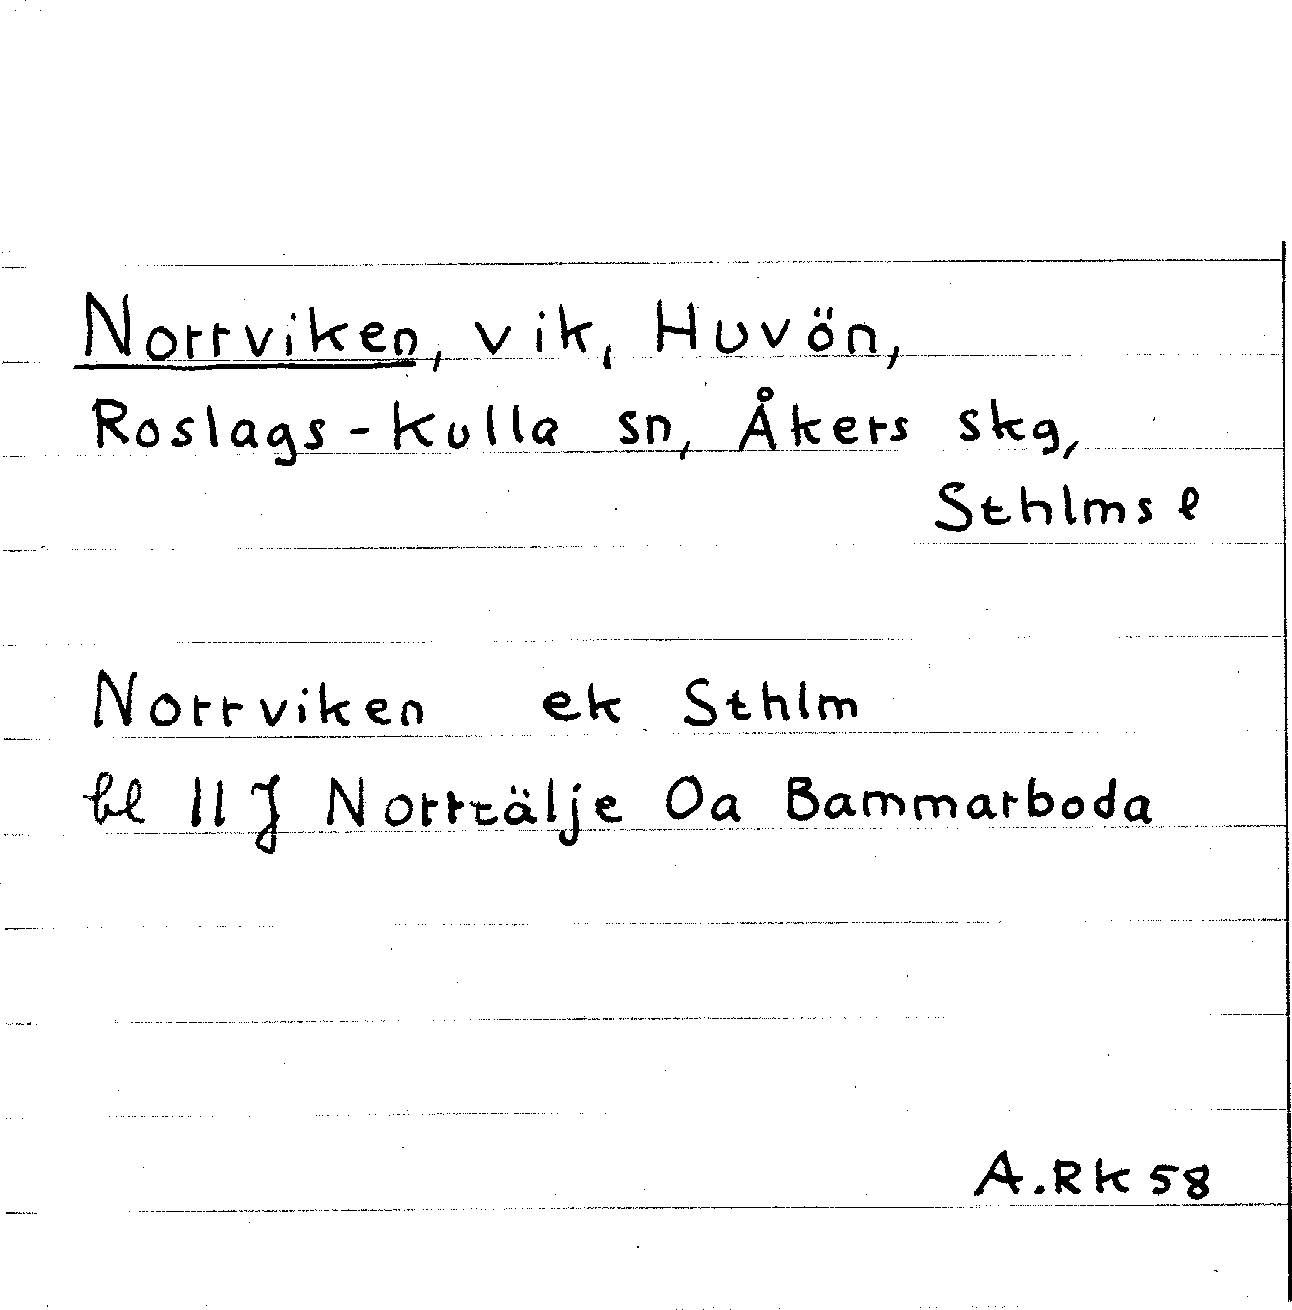 Norrviken, vik, Huvön,
Roslags-Kulla sn, Åkers skg,
Sthlms l
Norrviken ek Sthlm
bl 11 J Norrtälje Oa Bammarboda
A.RK 58